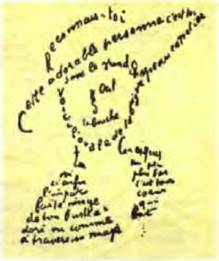 Reconnais-toi
Cette adorable personne c'est toi
Sous le grand chapeau canotier
Œil
la bouche
Voici l'ovale de ta figure
ci enfin
l'imparfa
ite image
de ton buste a
doré vu comme
à travers un nuage
un peu
plus bas
c'est ton
cœur
qui
bat